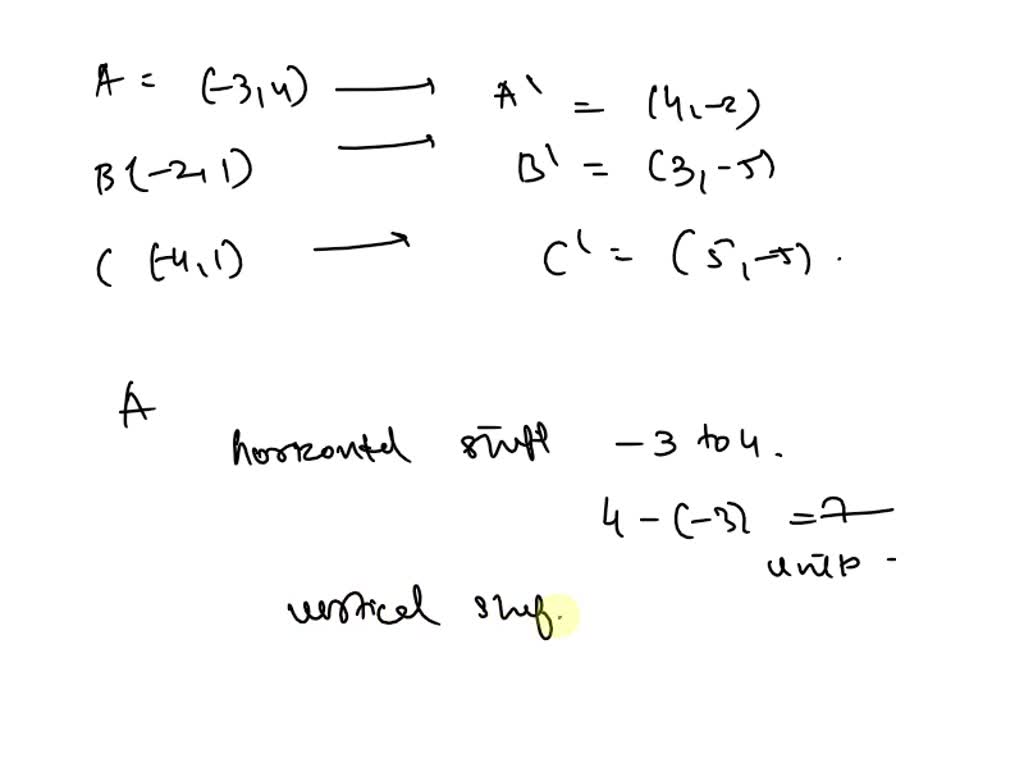 A = (-3,4) → A' = (4,-2)
B(-2,1) → B' = (3,-5)
C (-4,1) → C' = (5,-5).
A
horizontal shift -3 to 4.
4-(-3) = 7
units
vertical shif.